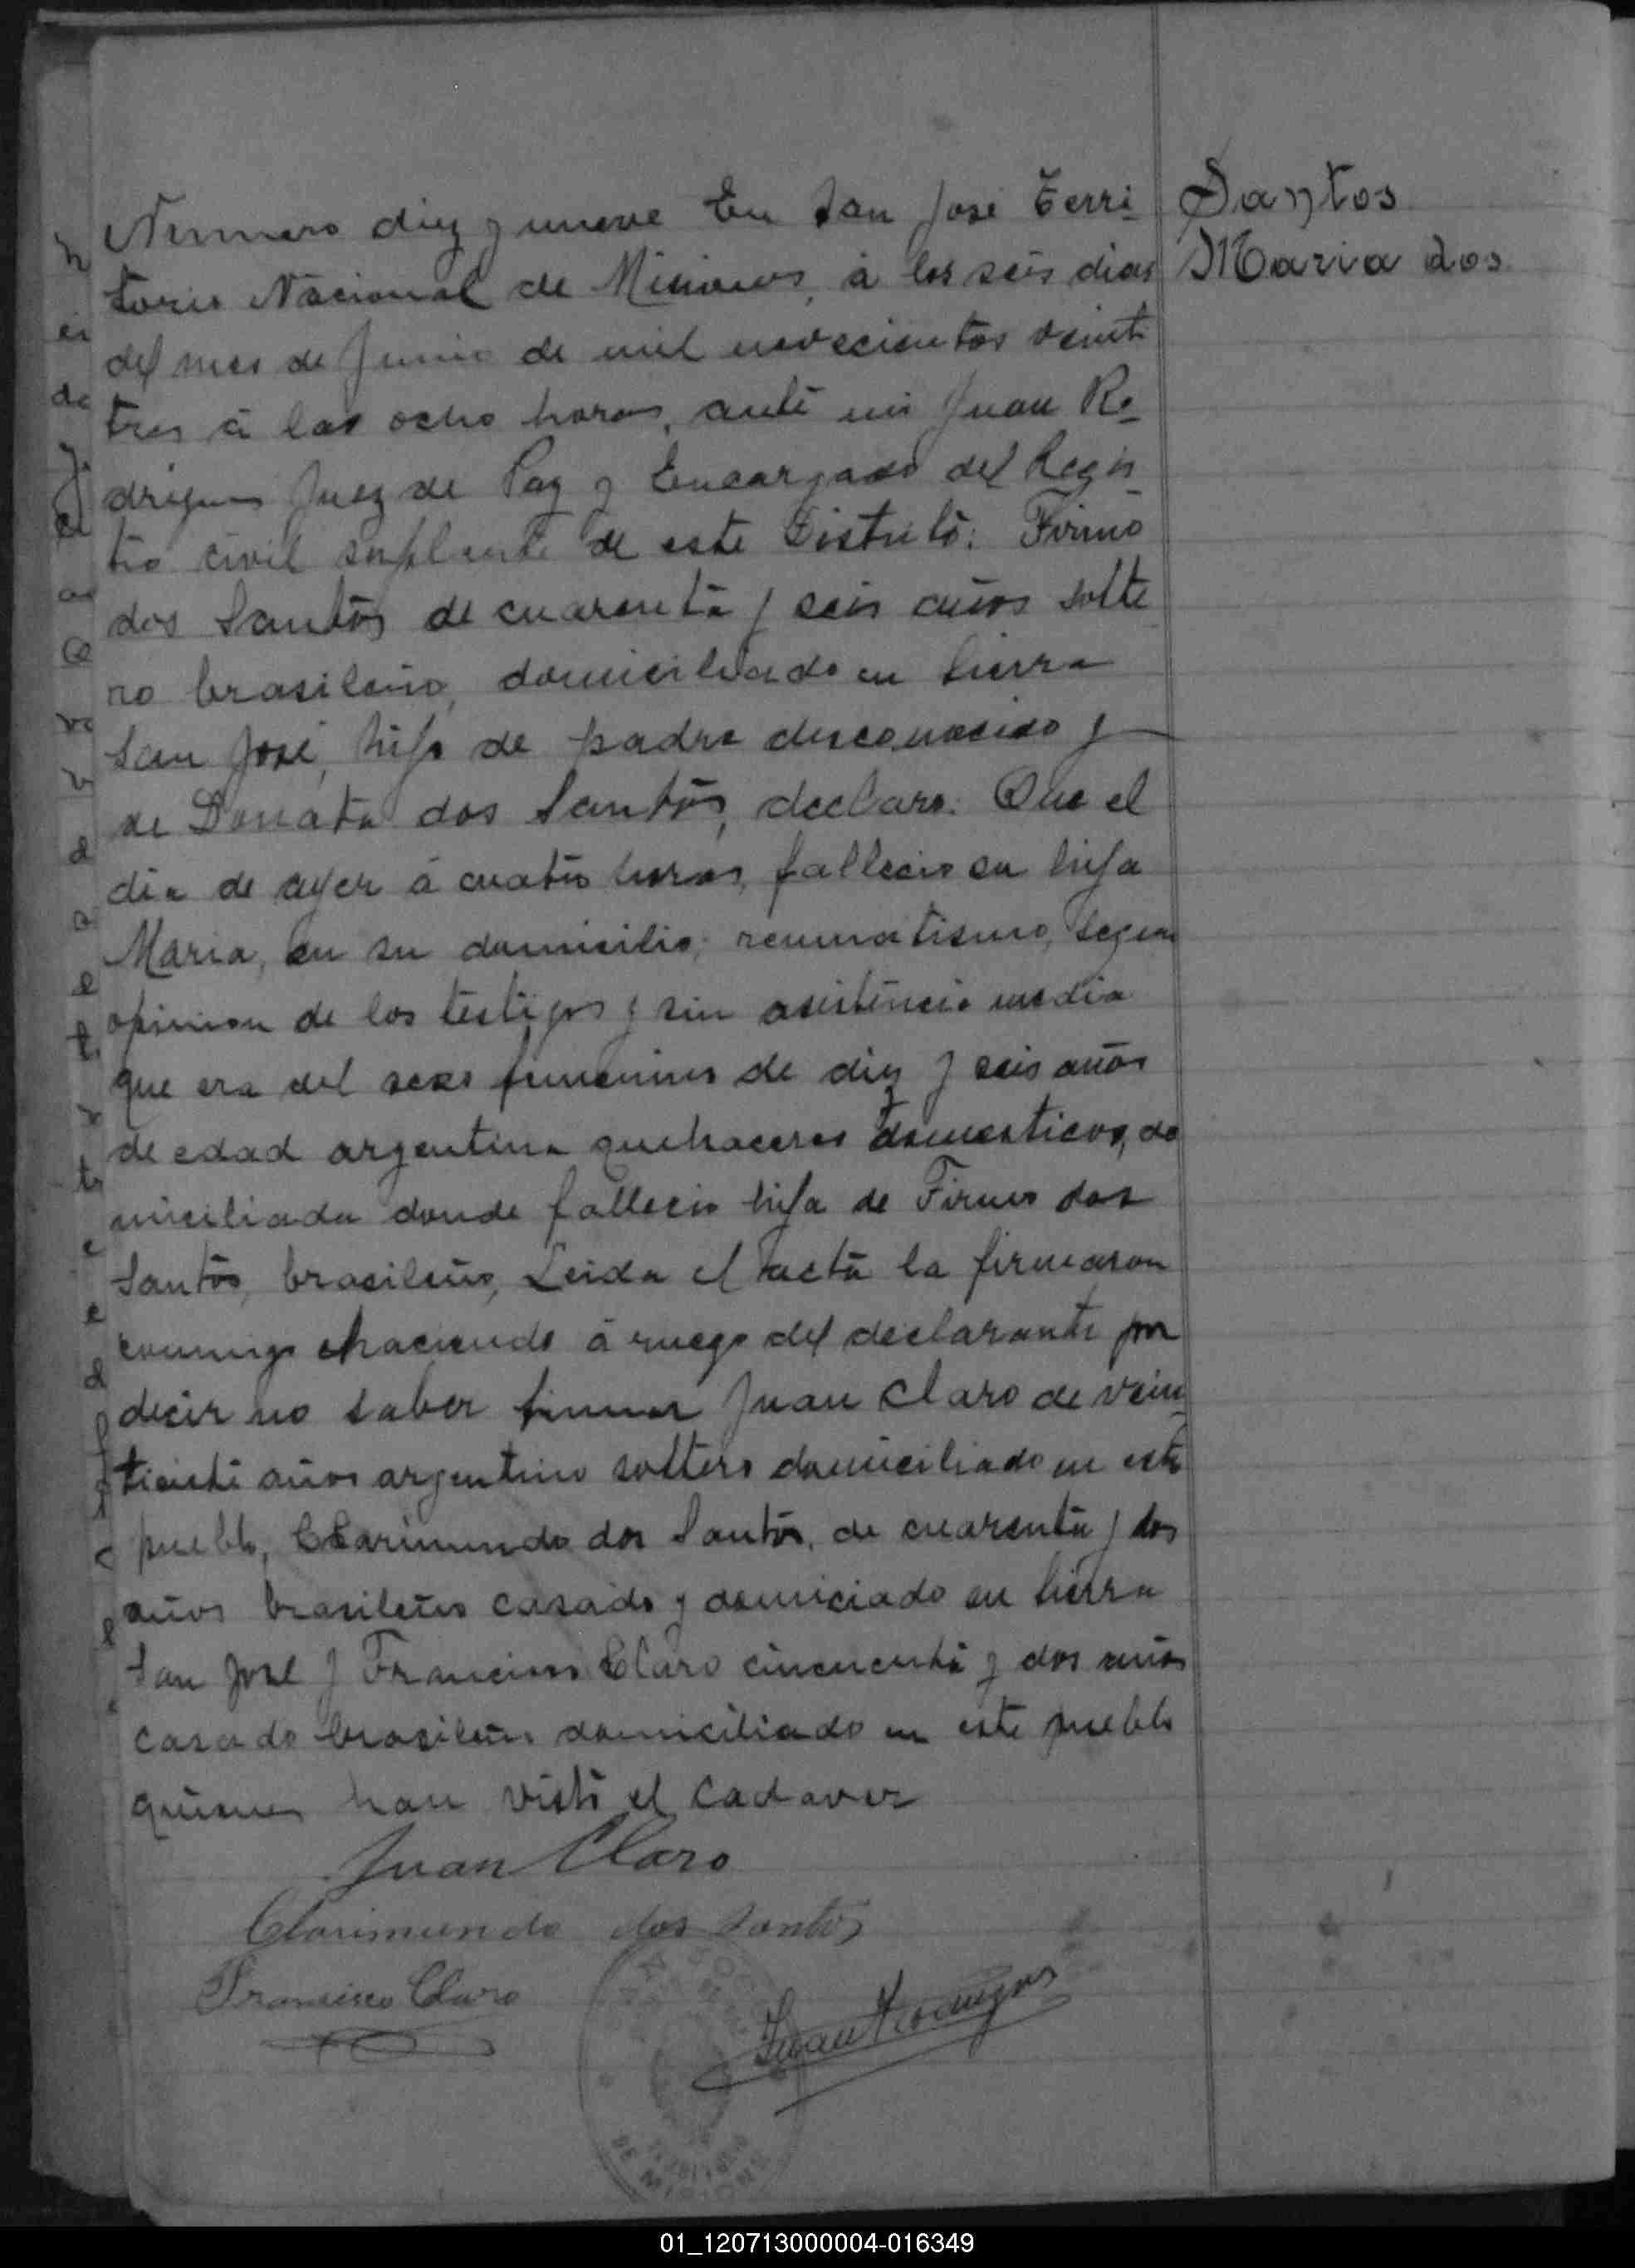 Santos
Maria dos
Numero diez y nueve En San José Terri-
torio Nacional de Misiones, á los seis dias
del mes de Junio de mil novecientos veinti
tres á las ocho horas, ante mi Juan Ro-
drigues Juez de Paz y Encargado del Regis-
tro civil suplente de este Distrito: Firmo
dos Santos de cuarenta y seis años solte
ro brasileño, domiciliado en Sierra
San José, hijo de padre desconocido y
de Donata dos Santos, declaro: Que el
dia de ayer á cuatro horas, fallecio su hija
Maria, en su domicilio; reumatismo, segun
opinion de los testigos y sin asistencia media
que era del sexo femenino de diez y seis años
de edad argentina quehaceres domesticos, do
miciliada donde fallecio hija de Firmo dos
Santos, brasileño, Leida el acta la firmaron
conmigo haciendo á ruego del declarante por
decir no saber firmar Juan Claro de vein-
tisiete años argentino soltero domiciliado en este
pueblo, Clarimundo dos Santos, de cuarenta y dos
años brasileño casado y domiciado en Sierra
San José y Francisco Claro cincuenta y dos años
casado brasileño domiciliado en este pueblo
quienes han visto el cadaver
Juan Claro
Clarimundo dos Santos
Francisco Claro
Juan Rodrigues
01_120713000004-016349